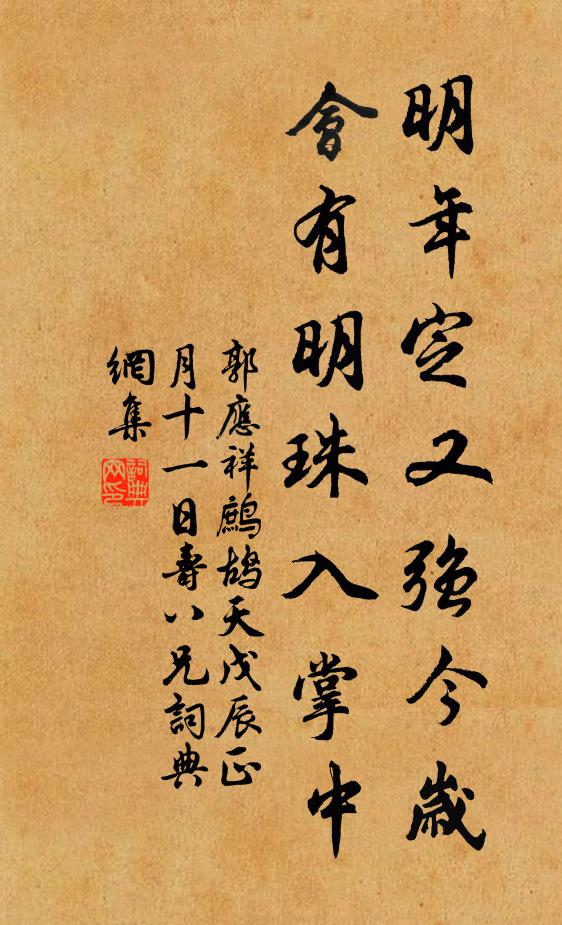 明年定又強今歲
會有明珠入掌中
郭應祥鷓鴣天戊辰正
月十一日壽八兄詞典
網集
詞典網印